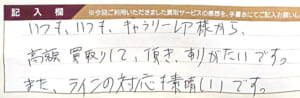 記入欄 ※今回ご利用いただきました買取サービスの感想を、手書きにてご記入お願い
いつも、いつも、ギャラリーレア様から、
高額買取りして、頂き、ありがたいです。
また、ラインの対応も素晴しいです。